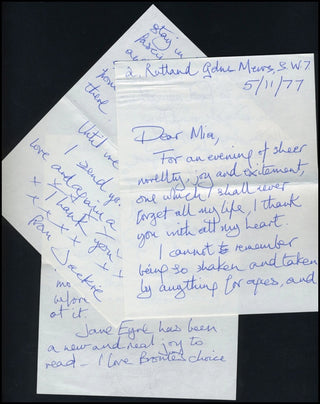 2, Rutland Gdns Mews, S.W.7
5/11/77
Dear Mia,
For an evening of sheer
novelty, joy and excitement,
one which I shall never
forget all my life, I thank
you with all my heart.
I cannot remember
being so shaken and taken
by anything for ages, and
stay in
there
Until we
I send yo
love and again a
x Thank you
x x x x x x
Jackie
mo
before
at it.
Jane Eyre has been
a new and real joy to
read – I love Bronte's choice